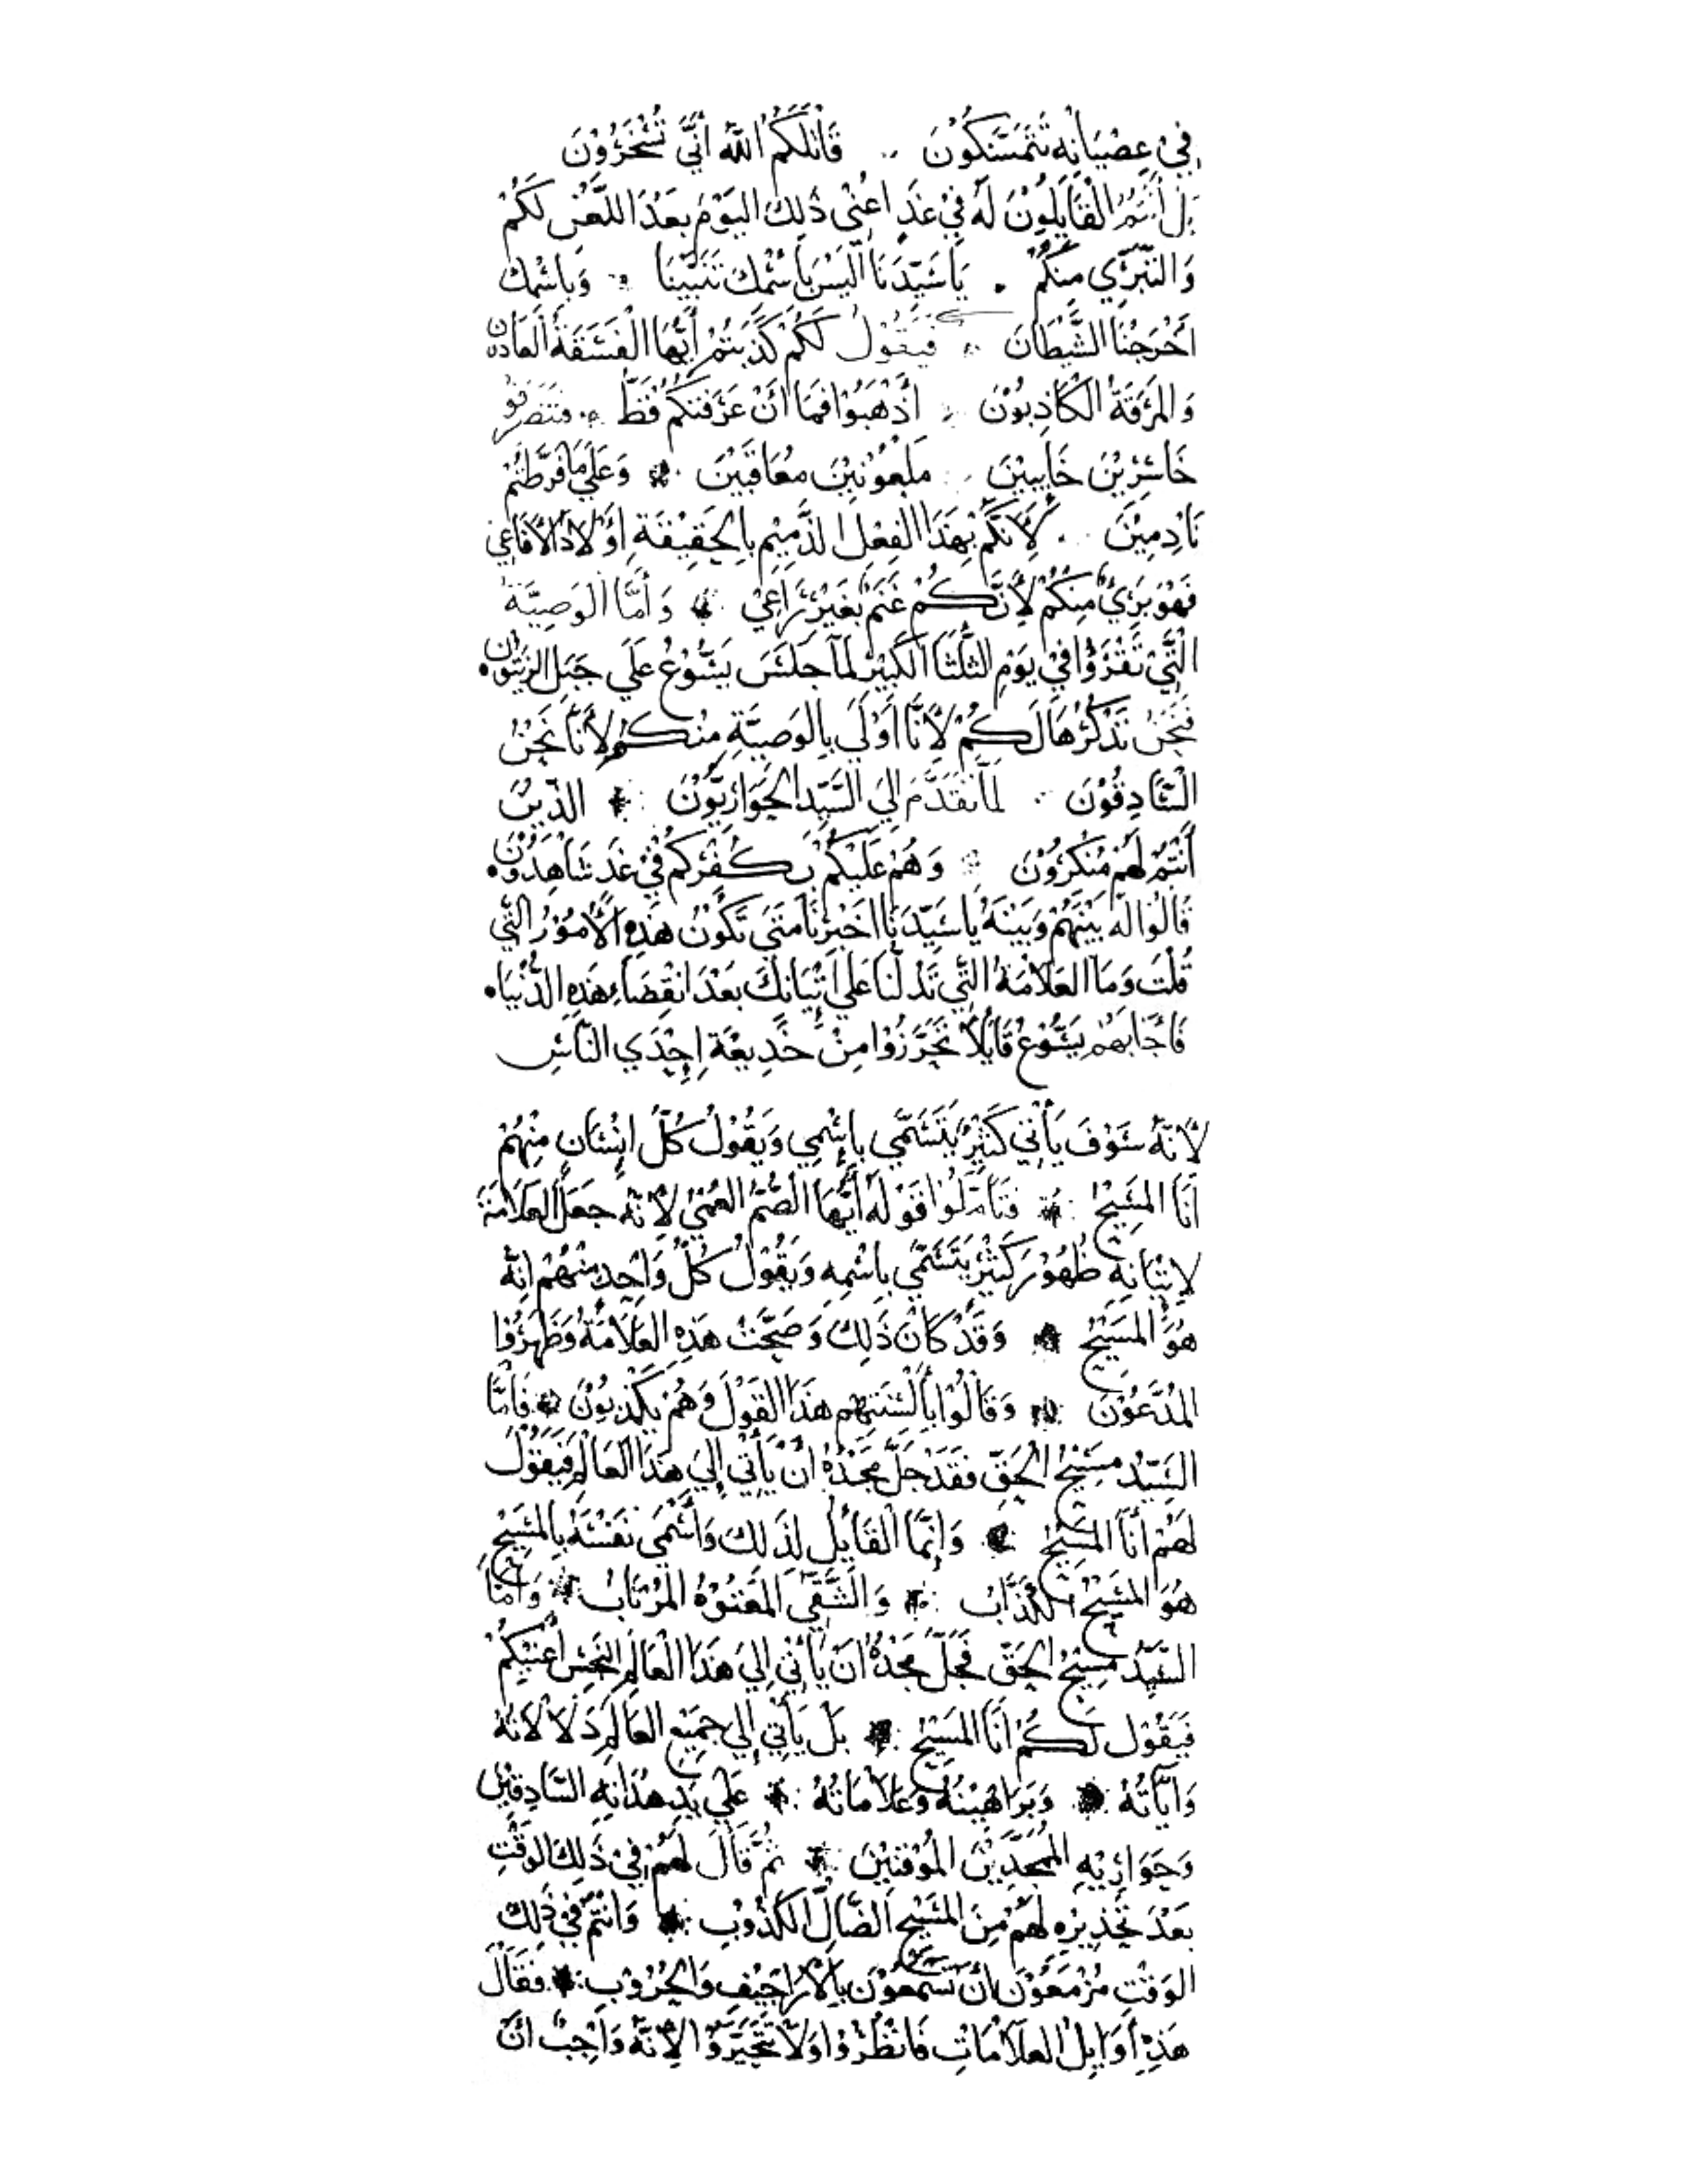 فِيْ عِصْيَانِهِ تَتَمَسَّكُوْنَ .. قَاتَلَكُمُ اللهُ أَنَّيَ تُسْخَرُوْنَ
بَلْ أَنْتُمُ الْقَايِلُوْنَ لَهُ فِيْ غَدٍ اعْنِيْ ذٰلِكَ اليَوْمَ بَعْدَ اللَّعْنِ لَكُمْ
وَالتَّبَرِّي مِنْكُمْ . يَا سَيِّدَنَا أَلَيْسَ بِاسْمِكَ تَنَبَّيْنَا .. وَبِاسْمِكَ
أَخْرَجْنَا الشَّيْطَانَ .. فَيَقُوْلُ لَكُمْ كَذَبْتُمْ أَيُّهَا الْفَسَقَةُ العَادُوْنَ
وَالمَرَقَةُ الكَاذِبُوْنَ .. أَذْهَبُوْا فَمَا أَنْ عَرَفْتُكُمْ قَطُّ .. فَتَنْصَرِفُو
خَاسِرِيْنَ خَايِبِيْنَ .. مَلْعُوْنِيْنَ مُعَاقَبِيْنَ .. وَعَلَيَ مَا فَرَّطْتُمْ
نَادِمِيْنَ .. لِأَنَّكُمْ بِهَذَا الفِعْلِ الذَّمِيْمِ بِالحَقِيْقَةِ أَوْلَادُ الأَفَاعِي
فَهُوَ بَرِيْ مِنْكُمْ لِأَنَّكُمْ غَنَمٌ بِغَيْرِ رَاعِيْ .. وَأَمَّا الوَصِيَّةُ
الَّتِيْ تَقْرَؤُا فِيْ يَوْمِ الثُّلَثَا الكَبِيْرِ لمَا جَلَسَ يَسُّوْعُ عَلَي جَبَلِ الزَيْتُوْنِ.
فَنَحْنُ نَذْكُرُهَا لَكُمْ لِأَنَّا أَوْلَي بِالوَصِيَّةِ مِنْكُمْ لِأَنَّا نَحْنُ
السَّادِقُوْنَ .. لمَا تَقَدَّمَ إِلَي السَّيِّدِ الحَوَارِيُّوْنَ .. الذِيْنَ
أَنْتُمْ لَهُمْ مُنْكِرُوْنَ .. وَهُمْ عَلَيْكُمْ بِكُفْرِكُمْ فِيْ غَدٍ شَاهِدُوْنَ.
قَالُوْا لَهُ بَيْنَهُمْ وَبَيْنَهُ يَا سَيِّدَنَا اخْبِرْنَا مَتَي تَكُوْنُ هَذِهِ الأُمُوْرُ الَّتِي
قُلْتَ وَمَا العَلَامَةُ الَّتِي تَدُلَّنَا عَلَي اتْيَانِكَ بَعْدَ انْقِضَاءِ هَذِهِ الدُّنْيَا.
فَأَجَابَهُمْ يَسُّوْعُ قَايِلًا تَحَرَّزُوْا مِنْ خَدِيْعَةِ إِحْدَي النَّاسِ
لِأَنَّهُ سَوْفَ يَأْتِي كَثِيْرٌ يَتَسَمَّي بِإِسْمِي وَيَقُوْلُ كُلُّ انْسَانٍ مِنْهُمْ
أَنَا المَسِيْحُ .. فَتَأَمَّلُوْا قَوْلَهُ أَيُّهَا الصُّمُّ العُمْيُ لِأَنَّهُ جَعَلَ العَلَامَةَ
لِاتْيَانِهِ ظُهُوْرَ كَثِيْرٍ يَتَسَمَّي بِاسْمِهِ وَيَقُوْلُ كُلُّ وَاحِدٍ مِنْهُمْ انَّهُ
هُوَ المَسِيْحُ .. وَقَدْ كَانَ ذَلِكَ وَصَحَّتْ هَذِهِ العَلَامَةُ وَظَهَرُوْا
المُدَّعُوْنَ .. وَقَالُوْا بِأَلْسِنَتِهِم هَذَا القَوْلَ وَهُمْ يَكْذِبُوْنَ .. فَأَمَّا
السَّيِّدُ مَسِيْحُ الحَقِّ فَقَدْ جَلَّ مَجْدُهُ انْ يَأْتِي إِلَيَ هَذَا العَالَمِ فَيَقُوْلُ
لَهُمْ أَنَا المَسِيْحُ .. وَانَّمَا القَايِلُ لِذَلِكَ وَأَسْمَي نَفْسَهُ بِالمَسِيْحِ
هُوَ المَسِيْحُ الكَذَّابُ .. وَالشَّقِيُّ المَعْتُوْهُ المُرْتَابُ .. وَأَمَّا
السَّيِّدُ مَسِيْحُ الحَقِّ فَجَلَّ مَجْدُهُ انْ يَأْتِيْ إِلَيَ هَذَا الْعَالَمِ النَّجِسِ أَعْنِيْكُمْ
فَيَقُوْلُ لَكُمْ أَنَا المَسِيْحُ .. بَلْ يَأْتِي إِلَي جَمِيْعِ العَالَمِ دَلَالَاتُهُ
وَآيَاتُهُ .. وَبَرَاهِيْنُهُ وَعَلَامَاتُهُ .. عَلَي يَدِ هُدَاتِهِ السَّادِقِيْنَ
وَحَوَارِيْهِ المُمَجَّدِيْنَ المُوْقِنِيْنَ .. ثُمَّ قَالَ لَهُمْ فِيْ ذَلِكَ الوَقْتِ
بَعْدَ تَحْذِيْرِهِ لَهُمْ مِنَ المَسِيْحِ الضَّالِّ الكَذُوْبِ .. وَانْتُمْ فِيْ ذَلِكَ
الوَقْتِ مُزْمَعُوْنَ انْ تَسْمَعُوْنَ بِالأَرَاجِيْفِ وَالحُرُوْبِ .. فَقَالَ
هَذِهِ أَوَايِلُ العَلَامَاتِ فَانْظُرُوْا وَلَا تَتَحَيَّرُوْا لِأَنَّهُ وَاجِبٌ انْ